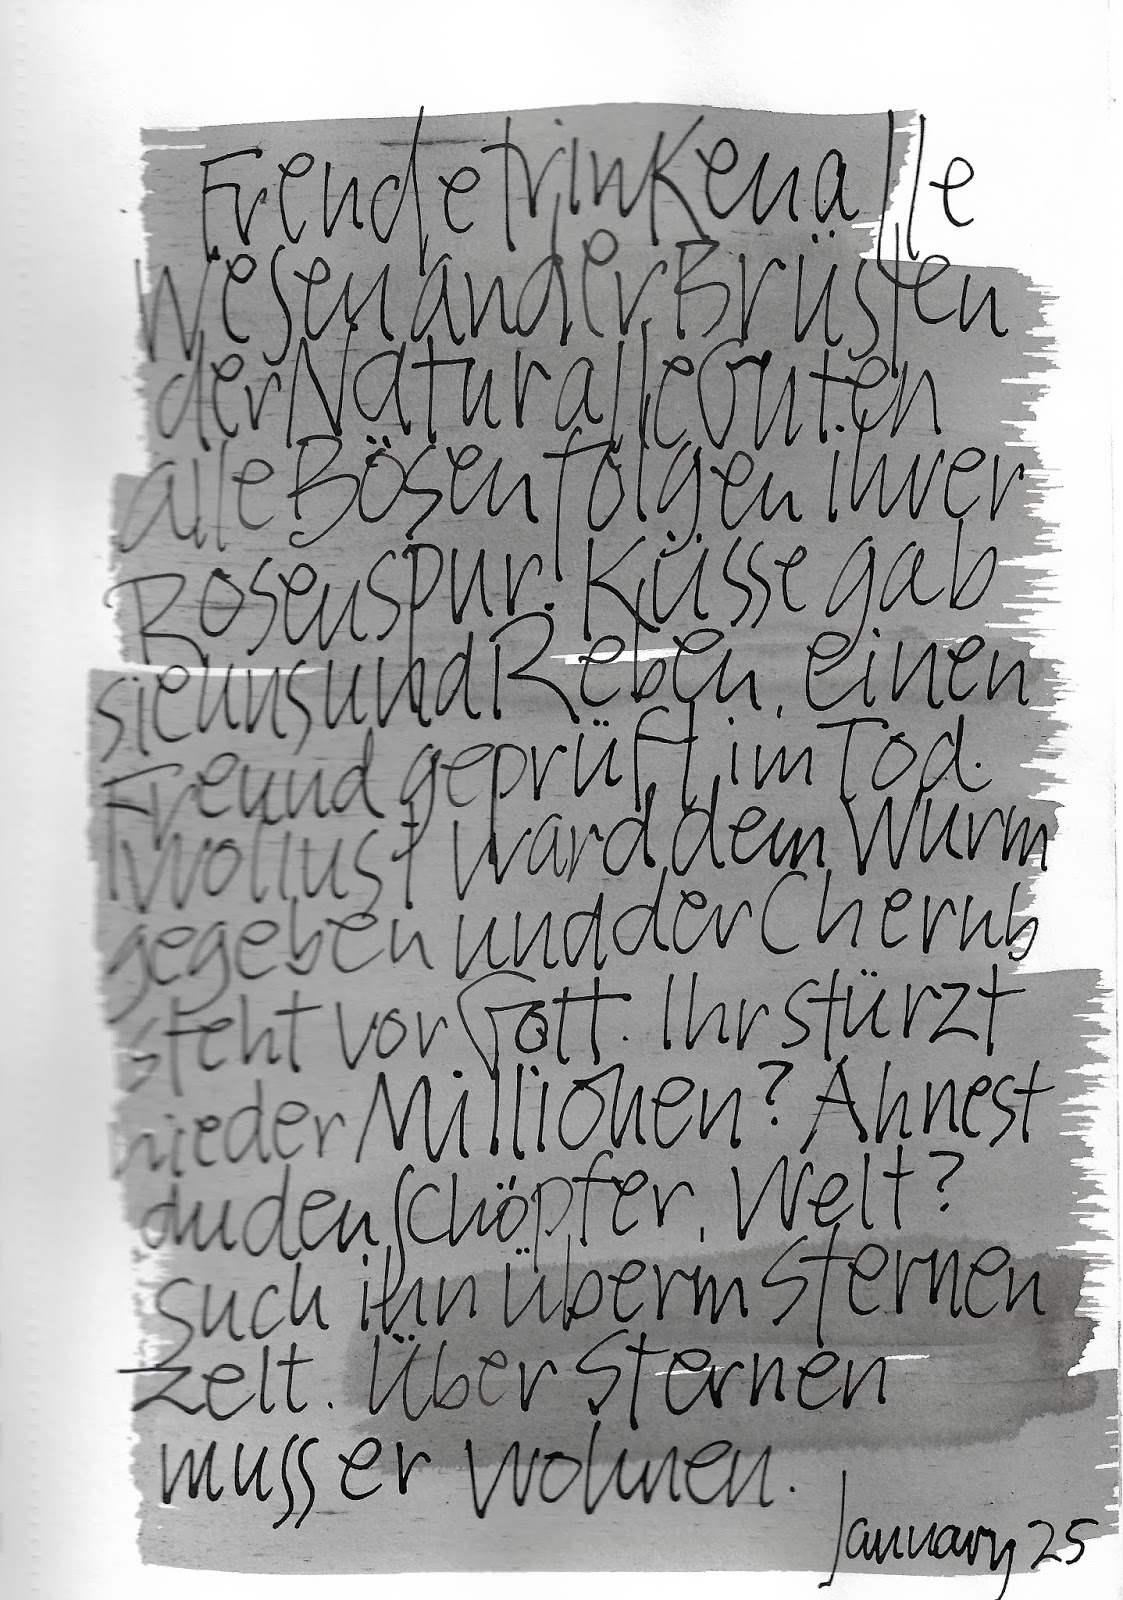 Freude trinken alle
Wesen an der Brüsten
der Natur alle Guten
alle Bösen folgen ihrer
Rosenspur. Küsse gab
sie uns und Reben, einen
Freund geprüft im Tod.
Wollust ward dem Wurm
gegeben und der Cherub
steht vor Gott. Ihr stürzt
nieder Millionen? Ahnest
du den Schöpfer, Welt?
Such ihn überm Sternen
zelt. Über Sternen
muss er wohnen.
January 25